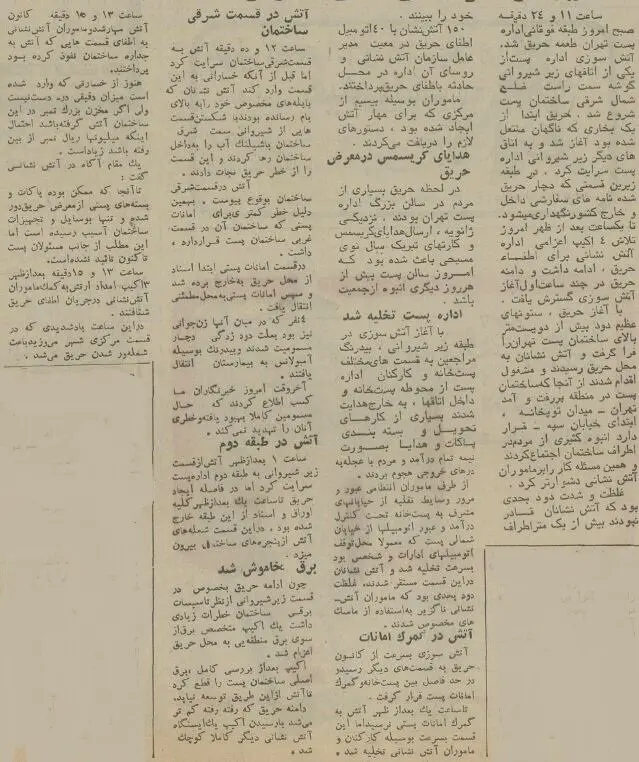 ساعت ۱۱ و ۲۴ دقیقه
صبح امروز طبقه فوقانی اداره
پست تهران طعمه حریق شد.
آتش سوزی اداره پست از
یکی از اتاقهای زیر شیروانی
گوشه سمت راست ضلع
شمال شرقی ساختمان پست
شروع شد. حریق ابتدا از
یک بخاری که ناگهان مشتعل
شده بود آغاز شد و به اتاق
های دیگر زیر شیروانی اداره
پست سرایت کرد. در طبقه
زیرین قسمتی که دچار حریق
شده نامه های سفارشی داخل
و خارج کشور نگهداری میشود.
تا یکساعت بعد از ظهر امروز
تلاش ۴ اکیپ اعزامی اداره
آتش نشانی برای اطفاء
حریق، ادامه داشت و دامنه
حریق در چند ساعت اول آغاز
آتش سوزی گسترش یافت.
با آغاز حریق، ستونهای
عظیم دود بیش از دویست متر
بالای ساختمان پست تهران را
فرا گرفت و آتش نشانان به
محل حریق رسیدند و مشغول
اقدام شدند از آنجا که ساختمان
پست در منطقه پررفت و آمد
تهران ـ میدان توپخانه،
ابتدای خیابان سپه ـ قرار
دارد انبوه کثیری از مردم در
اطراف ساختمان اجتماع کردند
و همین مسئله کار را بر ماموران
آتش نشانی دشوارتر کرد.
غلظت و شدت دود بحدی
بود که آتش نشانان قادر
نبودند بیش از یک متر اطراف
خود را ببینند.
۱۵۰ آتش نشان با ۴۰ اتومبیل
اطفای حریق در معیت مدیر
عامل سازمان آتش نشانی و
روسای آن اداره در محل
حادثه باطفای حریق پرداختند.
ماموران بوسیله بیسیم از
مرکزی که برای مهار آتش
ایجاد شده بود، دستورهای
لازم را دریافت می‌کردند.
هدایای کریسمس در معرض
حریق
در لحظه حریق بسیاری از
مردم در سالن بزرگ اداره
پست تهران بودند، نزدیکی
ژانویه، ارسال هدایای کریسمس
و کارتهای تبریک سال نوی
مسیحی باعث شده بود که
امروز سالن پست بیش از
هر روز دیگری انبوه از جمعیت
باشد.
اداره پست تخلیه شد
با آغاز آتش سوزی در
طبقه زیر شیروانی، بیدرنگ
مراجعین به قسمت های مختلف
پستخانه و کارکنان اداره
پست از محوطه پستخانه و
داخل اتاقها، به خارج هدایت
شدند بسیاری از کارهای
تحویل و بسته بندی
پاکات و هدایا بصورت
نیمه تمام درآمد و مردم با عجله به
درهای خروجی هجوم بردند.
از طرف ماموران انتظامی عبور و
مرور وسایط نقلیه از خیابانهای
مشرف به پستخانه تحت کنترل
درآمد و عبور اتومبیلها از خیابان
شمالی پست که معمولا محل توقف
اتومبیلهای ادارات و شخصی بود
بسرعت تخلیه شد و آتش نشانان
در این قسمت مستقر شدند. غلظت
دود بحدی بود که ماموران آتش
نشانی ناگزیر به استفاده از ماسک
های مخصوص شدند.
آتش در گمرک امانات
آتش سوزی بسرعت از کانون
حریق به قسمت های دیگر رسید و
در حد فاصل بین پستخانه و گمرک
امانات پست قرار گرفت.
تا ساعت یک بعد از ظهر آتش به
گمرک امانات پستی نرسید اما این
قسمت بسرعت بوسیله کارکنان و
ماموران آتش نشانی تخلیه شد.
آتش در قسمت شرقی
ساختمان
ساعت ۱۲ و ده دقیقه آتش به
قسمت شرقی ساختمان سرایت کرد
اما قبل از آنکه خساراتی به این
قسمت وارد کند آتش نشانان که
با پله‌های مخصوص خود را به بالای
بام رسانده بودند، با شکستن قسمت
هایی از شیروانی سمت شرقی
ساختمان با شیلنگ آب را به داخل
ساختمان رها کردند و این قسمت
را از خطر حریق نجات دادند.
آتش در قسمت شرقی
ساختمان بوقوع پیوست. بهمین
دلیل خطر کمتری برای امانات
پستی که ساختمان آن در قسمت
غربی ساختمان پست قرار دارد،
داشت.
در قسمت امانات پستی ابتدا اسناد
از محل حریق به خارج برده شد
و سپس امانات پستی به محل مطمئنی
انتقال یافت.
۴ نفر که در میان آنها زن جوانی
نیز بود بعلت دود زدگی دچار
مسمومیت شدند و بیدرنگ بوسیله
آمبولانس به بیمارستان انتقال
یافتند.
آخر وقت امروز خبرنگاران ما
کسب اطلاع کردند که حال
مسمومین کاملا بهبود یافته و خطری
آنان را تهدید نمی‌کند.
آتش در طبقه دوم
ساعت ۱ بعد از ظهر آتش از قسمت
زیر شیروانی به طبقه دوم اداره پست
سرایت کرد اما در فاصله ایجاد
حریق تا ساعت یک بعد از ظهر کلیه
اوراق و اسناد از این طبقه خارج
شده بود. در این قسمت شعله‌های
آتش از پنجره‌های ساختمان بیرون
میزد.
برق خاموش شد
چون ادامه حریق بخصوص در
قسمت زیر شیروانی از نظر تاسیسات
برقی ساختمان خطرات زیادی
داشت یک اکیپ متخصص برق از
سوی برق منطقه‌یی به محل حریق
اعزام شد.
اکیپ بعد از بررسی کامل، برق
اصلی ساختمان پست را قطع کرد
تا آتش از این طریق توسعه نیابد.
دامنه حریق که رفته رفته کم تر
می‌شد با رسیدن اکیپ یک ایستگاه
آتش نشانی دیگر کاملا کوچک
شد.
ساعت ۱۳ و ۱۵ دقیقه کانون
آتش مهار شد و ماموران آتش نشانی
به اطفای قسمت هایی که آتش به
جداره ساختمان نفوذ کرده بود
پرداختند.
هنوز از خسارتی که وارد شده
است میزان دقیقی در دست نیست
ولی اگر مخزن بزرگ تمبر در این
ساختمان آتش گرفته باشد احتمال
اینکه میلیونها ریال تمبر از بین
رفته باشد زیاد است.
یک مقام آگاه در آتش نشانی
گفت:
تا آنجا که ممکن بوده پاکات و
بسته‌های پستی از معرض حریق دور
شده و تنها بوسایل و تجهیزات
ساختمان آسیب رسیده است اما
این مطلب از جانب مسئولان پست
تا کنون تائید نشده است.
ساعت ۱۳ و ۱۵ دقیقه بعد از ظهر
۳ اکیپ امداد ارتش به کمک ماموران
آتش نشانی در جریان اطفای حریق
شتافتند.
در این ساعت باد شدیدی که در
قسمت مرکزی شهر می‌وزید باعث
شعله‌ور شدن حریق می‌شد.